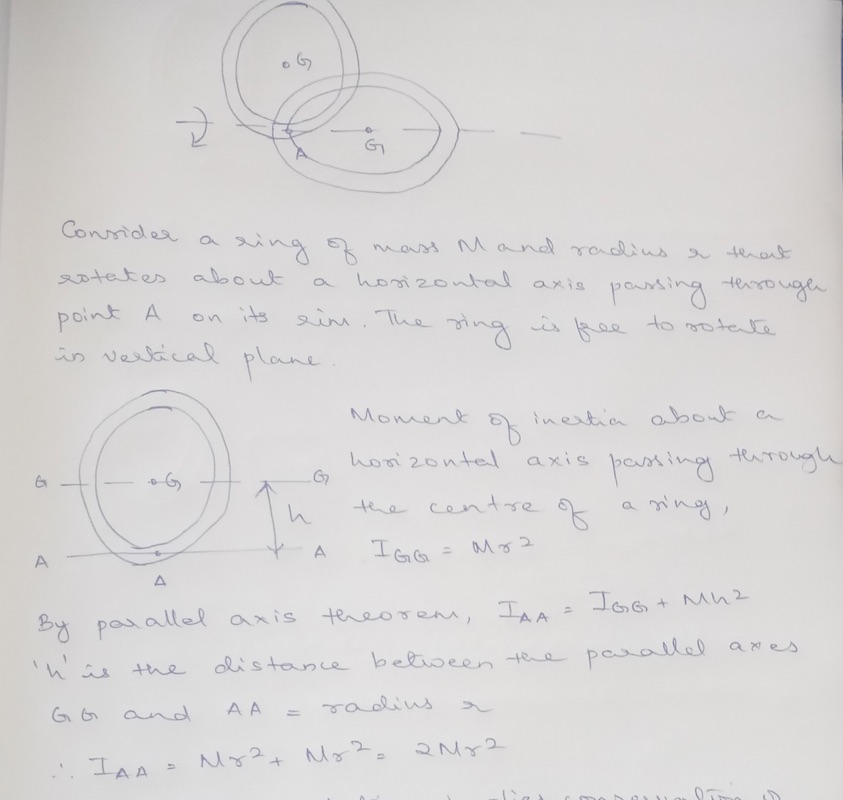 G
A
G
Consider a ring of mass M and radius r that
rotates about a horizontal axis passing through
point A on its rim. The ring is free to rotate
in vertical plane.
Moment of inertia about a
horizontal axis passing through
the centre of a ring,
I_GG = Mr²
G G G
h
A A
A
By parallel axis theorem, I_AA = I_GG + Mh²
'h' is the distance between the parallel axes
GG and AA = radius r
∴ I_AA = Mr² + Mr² = 2Mr²